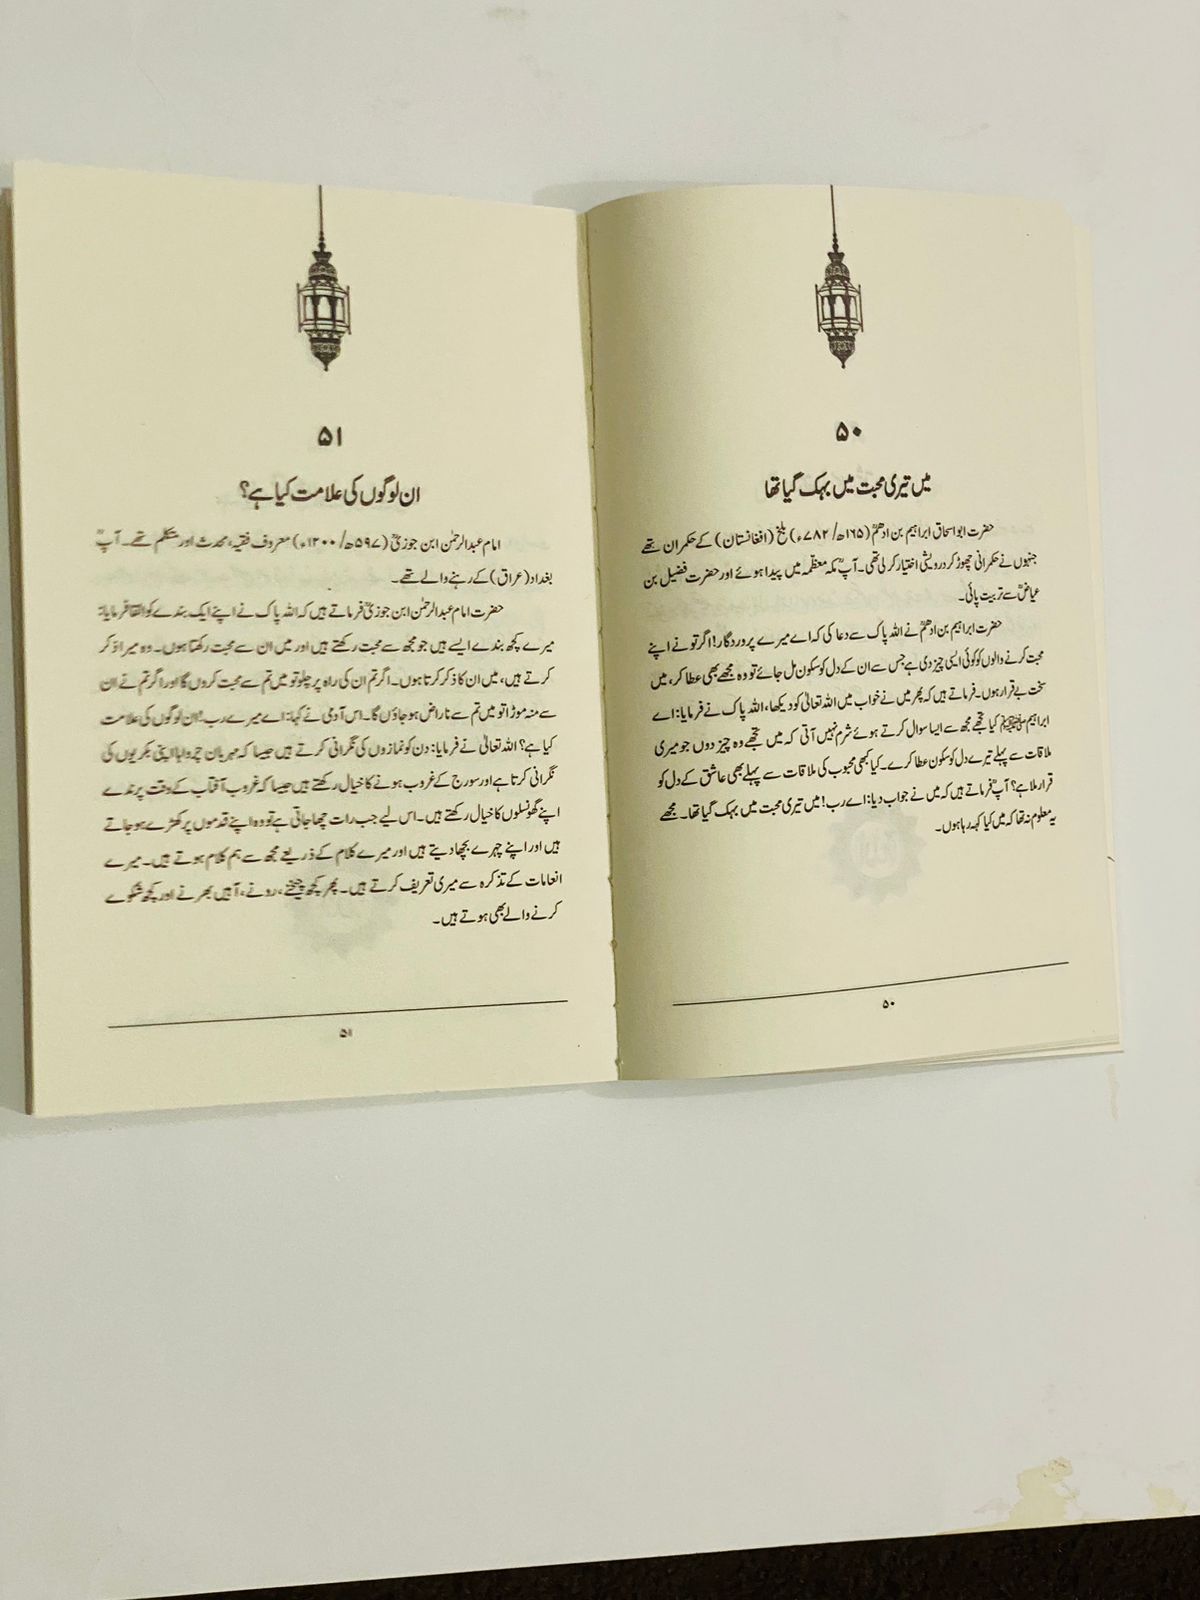 ۵۰
میں تیری محبت میں بہک گیا تھا
حضرت ابو اسحاق ابراہیم بن ادھمؒ (۱۶۵ھ/۷۸۲ء) بلخ (افغانستان) کے حکمران تھے
جنہوں نے حکمرانی چھوڑ کر درویشی اختیار کر لی تھی۔ آپؒ مکہ معظمہ میں پیدا ہوئے اور حضرت فضیل بن
عیاضؒ سے تربیت پائی۔
حضرت ابراہیم بن ادھمؒ نے اللہ پاک سے دعا کی کہ اے میرے پروردگار! اگر تو نے اپنے
محبت کرنے والوں کو کوئی ایسی چیز دی ہے جس سے ان کے دل کو سکون مل جائے تو وہ مجھے بھی عطا کر، میں
سخت بے قرار ہوں۔ فرماتے ہیں کہ پھر میں نے خواب میں اللہ تعالیٰ کو دیکھا، اللہ پاک نے فرمایا: اے
ابراہیم ﷺ کیا تجھے مجھ سے ایسا سوال کرتے ہوئے شرم نہیں آتی کہ میں تجھے وہ چیز دوں جو میری
ملاقات سے پہلے تیرے دل کو سکون عطا کرے۔ کیا کبھی محبوب کی ملاقات سے پہلے بھی عاشق کے دل کو
قرار ملا ہے؟ آپؒ فرماتے ہیں کہ میں نے جواب دیا: اے رب! میں تیری محبت میں بہک گیا تھا۔ مجھے
یہ معلوم نہ تھا کہ میں کیا کہہ رہا ہوں۔
۵۰
۵۱
ان لوگوں کی علامت کیا ہے؟
امام عبدالرحمٰن ابن جوزیؒ (۵۹۷ھ/۱۲۰۰ء) معروف فقیہ، محدث اور متکلم تھے۔ آپؒ
بغداد (عراق) کے رہنے والے تھے۔
حضرت امام عبدالرحمٰن ابن جوزیؒ فرماتے ہیں کہ اللہ پاک نے اپنے ایک بندے کو القا فرمایا:
میرے کچھ بندے ایسے ہیں جو مجھ سے محبت رکھتے ہیں اور میں ان سے محبت رکھتا ہوں۔ وہ میرا ذکر
کرتے ہیں، میں ان کا ذکر کرتا ہوں۔ اگر تم ان کی راہ پر چلو تو میں تم سے محبت کروں گا اور اگر تم نے ان
سے منہ موڑا تو میں تم سے ناراض ہو جاؤں گا۔ اس آدمی نے کہا: اے میرے رب! ان لوگوں کی علامت
کیا ہے؟ اللہ تعالیٰ نے فرمایا: دن کو نمازوں کی نگرانی کرتے ہیں جیسا کہ مہربان چرواہا اپنی بکریوں کی
نگرانی کرتا ہے اور سورج کے غروب ہونے کا خیال رکھتے ہیں جیسا کہ غروب آفتاب کے وقت پرندے
اپنے گھونسلوں کا خیال رکھتے ہیں۔ اس لیے جب رات چھا جاتی ہے تو وہ اپنے قدموں پر کھڑے ہو جاتے
ہیں اور اپنے چہرے بچھا دیتے ہیں اور میرے کلام کے ذریعے مجھ سے ہم کلام ہوتے ہیں۔ میرے
انعامات کے تذکرہ سے میری تعریف کرتے ہیں۔ پھر کچھ چیخنے، رونے، آہیں بھرنے اور کچھ شکوے
کرنے والے بھی ہوتے ہیں۔
۵۱